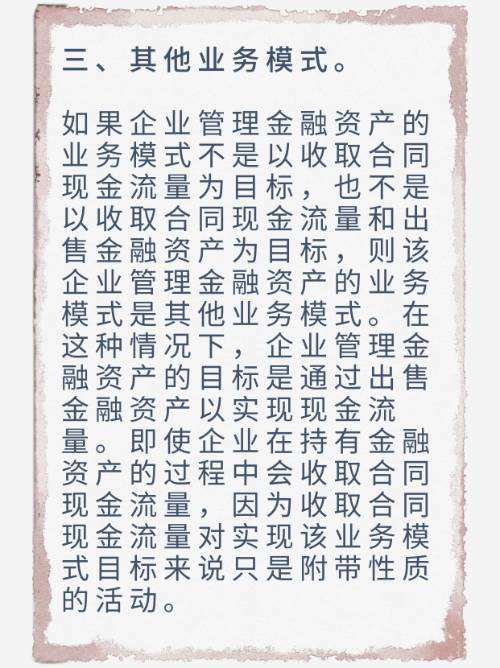 三、其他业务模式。
如果企业管理金融资产的
业务模式不是以收取合同
现金流量为目标，也不是
以收取合同现金流量和出
售金融资产为目标，则该
企业管理金融资产的业务
模式是其他业务模式。在
这种情况下，企业管理金
融资产的目标是通过出售
金融资产以实现现金流
量。即使企业在持有金融
资产的过程中会收取合同
现金流量，因为收取合同
现金流量对实现该业务模
式目标来说只是附带性质
的活动。